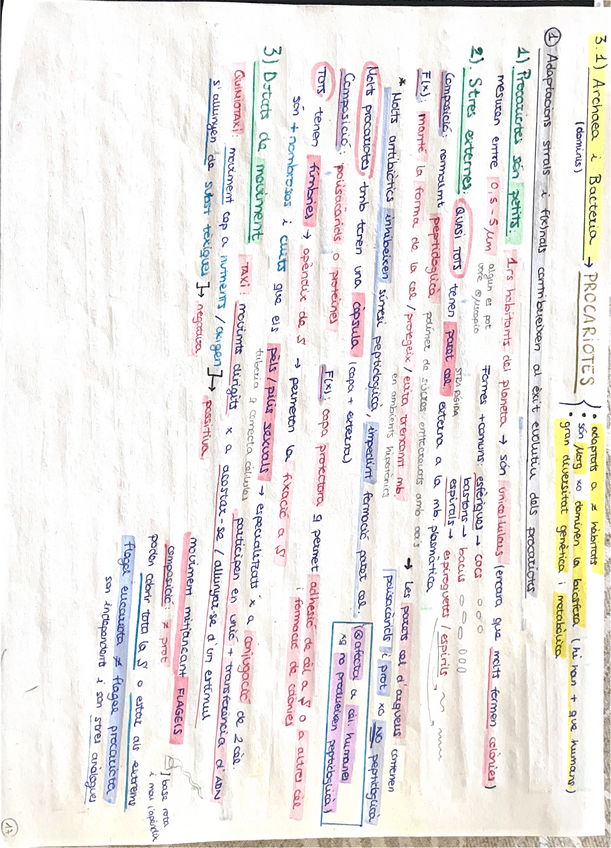 3.1) Archaea i Bacteria → PROCARIOTES
(dominis)
• adaptats a ≠ hàbitats
• són µorg xo dominen la biosfera (hi han + que humans)
• gran diversitat genètica i metabòlica
① Adaptacions strals i f(x)nals contribueixen al èxit evolutiu dels procariotes
1) Procariotes són petits: 1rs habitants del planeta → són unicel·lulars (encara que molts formen colònies)
mesuren entre 0,5-5 µm
algun es pot
Formes + comuns: esfèriques → cocs
bastons → bacils
espirals → espiroquetes / espirils
2) Stres externes: QUASI TOTS tenen paret cel externa a la mb plasmàtica
STRA RÍGIDA
Composició: normalmt peptidoglicà
polímer de sucres entrecreuats amb
→ Les parets cel d'arqueus contenen
polisacàrids i prot, xo NO peptidoglicà
F(x): manté la forma de la cel / protegeix / evita trencamt mb
en ambients hipotònics
* Molts antibiòtics inhibeixen síntesi peptidoglicà, impedint formació paret cel.
afecta a cèl. humanes
xq no produeixen peptidoglicà
Molts procariotes tmb tenen una càpsula (capa + externa)
Composició: polisacàrids o proteïnes
F(x): capa protectora q permet adhesió de cèl a S o a altres cèl
i formació de colònies
Tots tenen fímbries → apèndix de S → permeten la fixació a S
són + nombrosos i curts que els pèls/pilis sexuals → especialitzats x a conjugació de 2 cèl
participen en unió + transferència d'ADN
3) Dotats de moviment
TAXI: movimts dirigits x a acostar-se / allunyar-se d'un estímul
QUIMIOTAXI: moviment cap a nutrients / oxigen ]→ positiva
s'allunyen de subst tòxiques ]→ negativa
moviment mitjançant FLAGELS
composició: ≠ prot
] base rota
i mou l'apèndix
poden cobrir tota la S o estar als extrems
flagel eucariota ≠ flagel procariota
són independent i són stres anàlogues